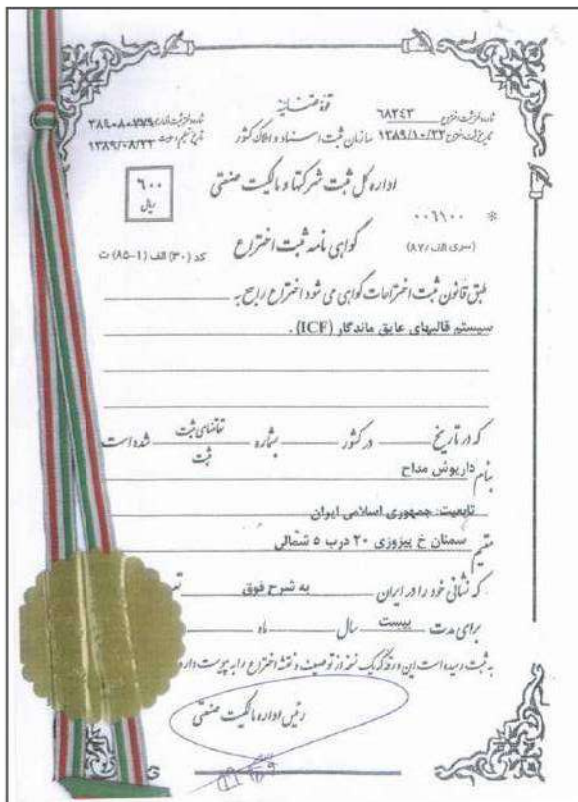 قوه قضائیه
سازمان ثبت اسناد و املاک کشور
شماره و تاریخ ثبت اختراع ۶۸۲۴۳
تاریخ ثبت اختراع ۱۳۸۹/۱۰/۲۲
شماره ثبت اظهارنامه ۳۸۹۰۸۰۷۷۹
۱۳۸۹/۰۸/۲۲
اداره کل ثبت شرکتها و مالکیت صنعتی
۶۰۰
ریال
* ۰۰۶۱۰۰
(سری الف/۸۷)
گواهی نامه ثبت اختراع
کد (۳۰) الف (۱-۸۵) ث
طبق قانون ثبت اختراعات گواهی می شود اختراع راجع به
سیستم قالبهای عایق ماندگار (ICF) .
که در تاریخ در کشور بشماره تقاضای ثبت شده است
ثبت
بنام داریوش مداح
تابعیت: جمهوری اسلامی ایران
مقیم سمنان خ پیروزی ۲۰ درب ۵ شمالی
که نشانی خود را در ایران به شرح فوق
برای مدت بیست سال ماه
به ثبت رسیده است این ورقه که یک نسخه از توصیف و نقشه اختراع را به پیوست دارد
رئیس اداره مالکیت صنعتی